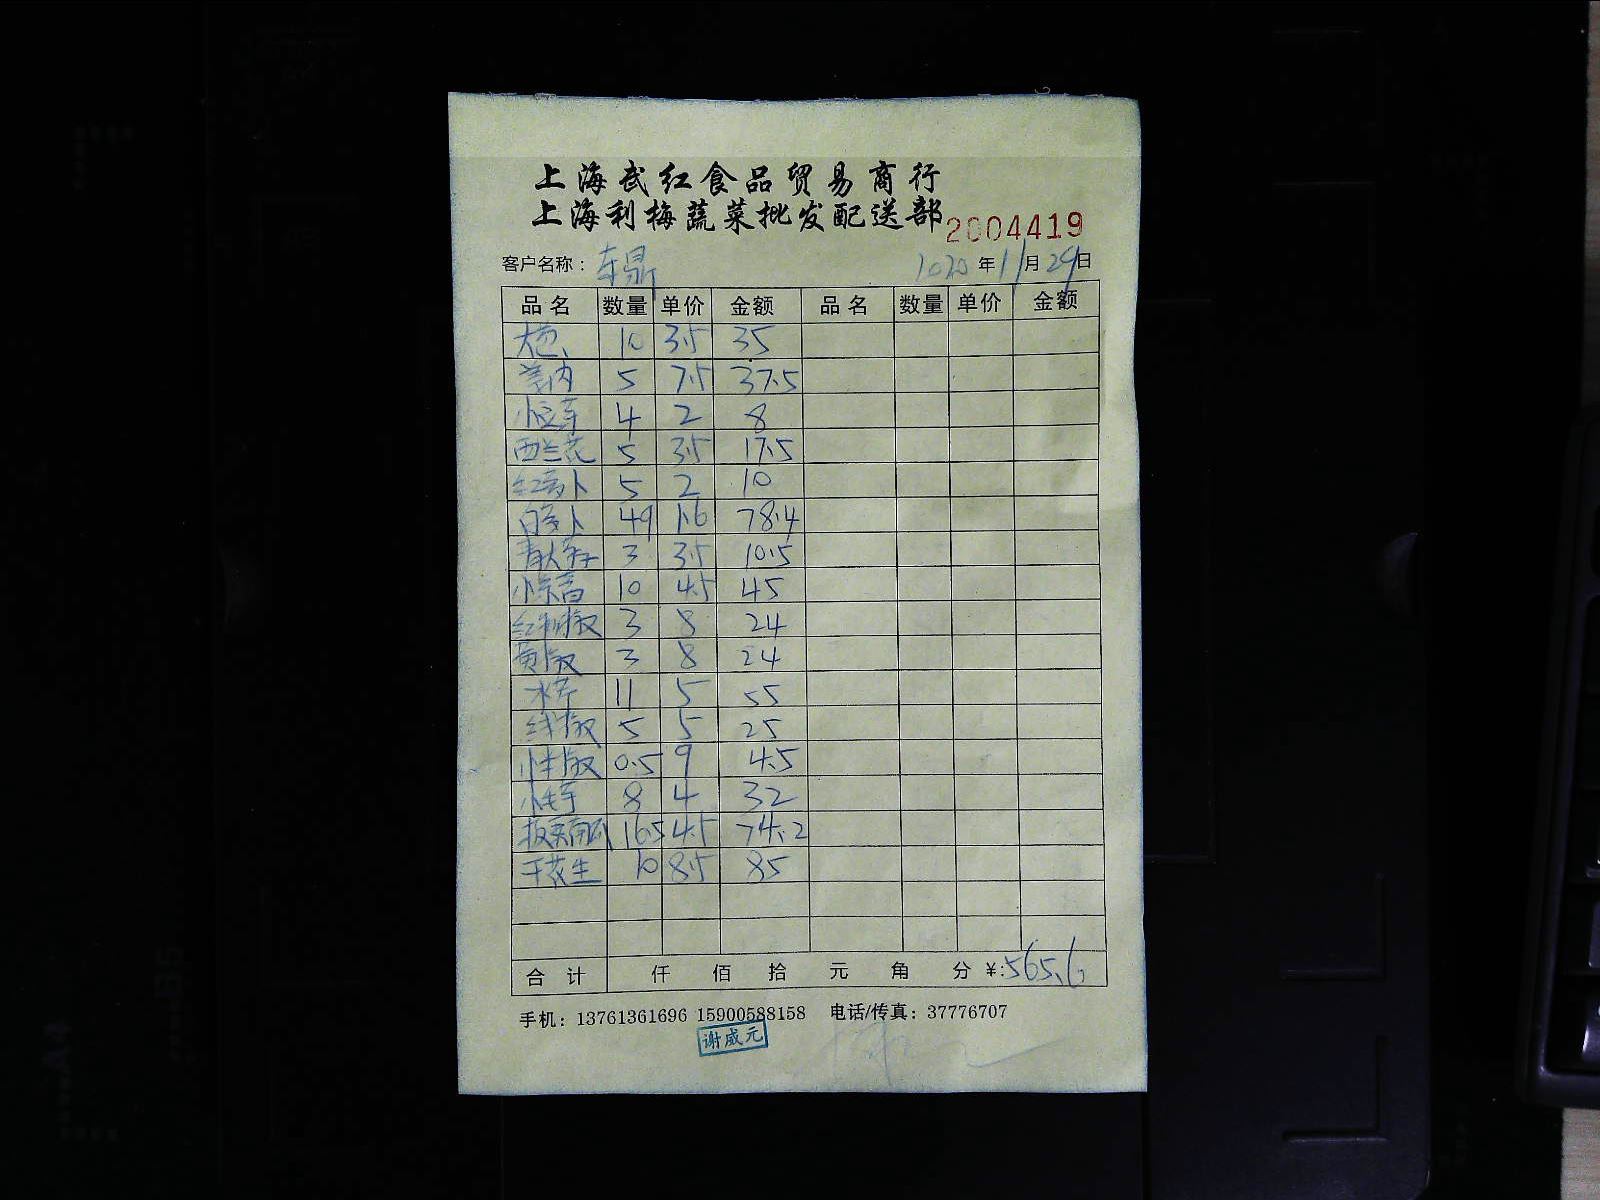 上海武红食品贸易商行
上海利梅蔬菜批发配送部
2004419
客户名称： 年11月29日
品名 数量 单价 金额 品名 数量 单价 金额
10 3.5 35
5 7.5 37.5
4 2 8
西兰花 5 3.5 17.5
红萝卜 5 2 10
白萝卜 49 1.6 78.4
3 3.5 10.5
10 4.5 45
3 8 24
黄椒 3 8 24
水芹 11 5 55
线椒 5 5 25
0.5 9 4.5
8 4 32
板栗南瓜 16.5 4.5 74.2
干花生 10 8.5 85
合计 仟 佰 拾 元 角 分 ¥:565.6
手机：13761361696 15900588158 电话/传真：37776707
谢威元